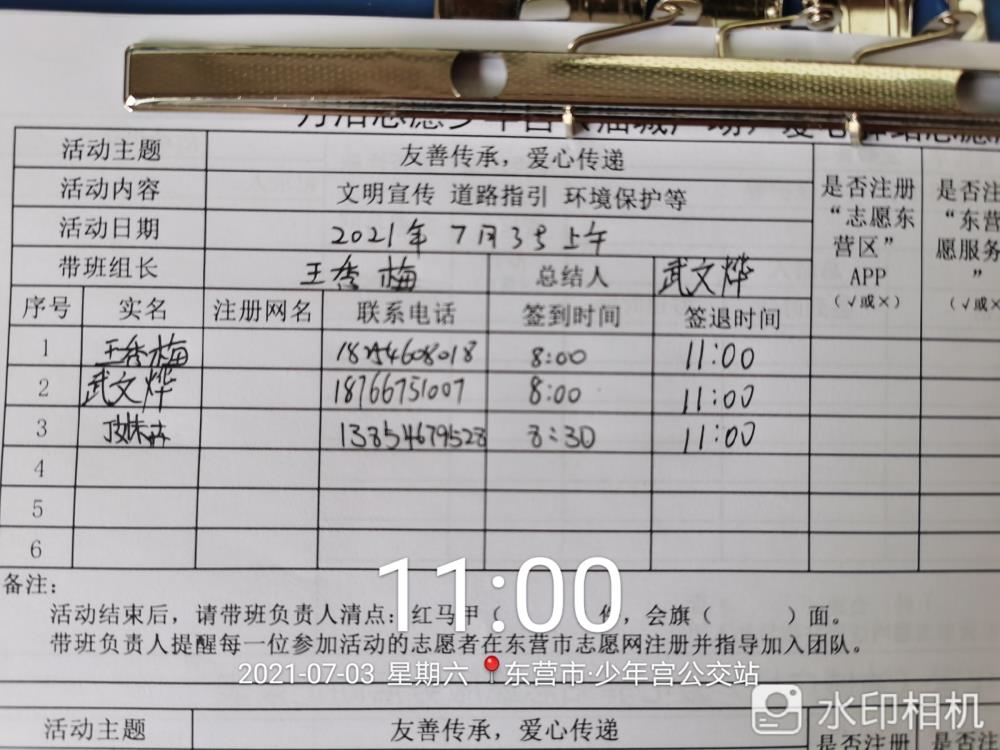 活动主题 友善传承，爱心传递
活动内容 文明宣传 道路指引 环境保护等
活动日期 2021年7月3号上午
带班组长 王秀梅 总结人 武文烨
是否注册
“志愿东
营区”
APP
（√或×）
是否注
“东营
愿服务
”
（√或×
序号 实名 注册网名 联系电话 签到时间 签退时间
1 王秀梅 18254608018 8:00 11:00
2 武文烨 18766751007 8:00 11:00
3 13854679528 8:30 11:00
4
5
6
备注：
活动结束后，请带班负责人清点：红马甲（ 件，会旗（ ）面。
带班负责人提醒每一位参加活动的志愿者在东营市志愿网注册并指导加入团队。
11:00
2021-07-03 星期六 东营市·少年宫公交站
水印相机
活动主题 友善传承，爱心传递
是否注册 是否注